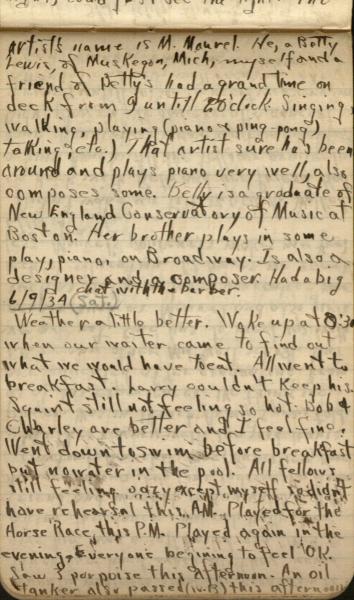 artists name is M. Maurel. He, a Betty
Lewis, of Muskegon, Mich, myself and a
friend of Betty's had a grand time on
deck from 9 untill 2 o'clock. Singing
walking, playing (piano & ping pong)
talking, etc.) That artist sure has been
around and plays piano very well, also
composes some. Betty is a graduate of
New England Conservatory of Music at
Boston. Her brother plays in some
play, piano, on Broadway. Is also a
designer and a composer. Had a big
chat with the barber.
6/9/34 (Sat.)
Weather a little better. Woke up at 8:30
when our waiter came to find out
what we would have to eat. All went to
breakfast. Larry couldn't keep his.
Squint still not feeling so hot. Bob &
Charley are better and I feel fine.
Went down to swim before breakfast
but no water in the pool. All fellows
still feeling except myself so didn't
have rehearsal this A.M. Played for the
Horse Race, this P.M. Played again in the
evening. Everyone begining to feel OK.
Saw 3 porpuise this afternoon. An oil
tanker also passed this afternoon